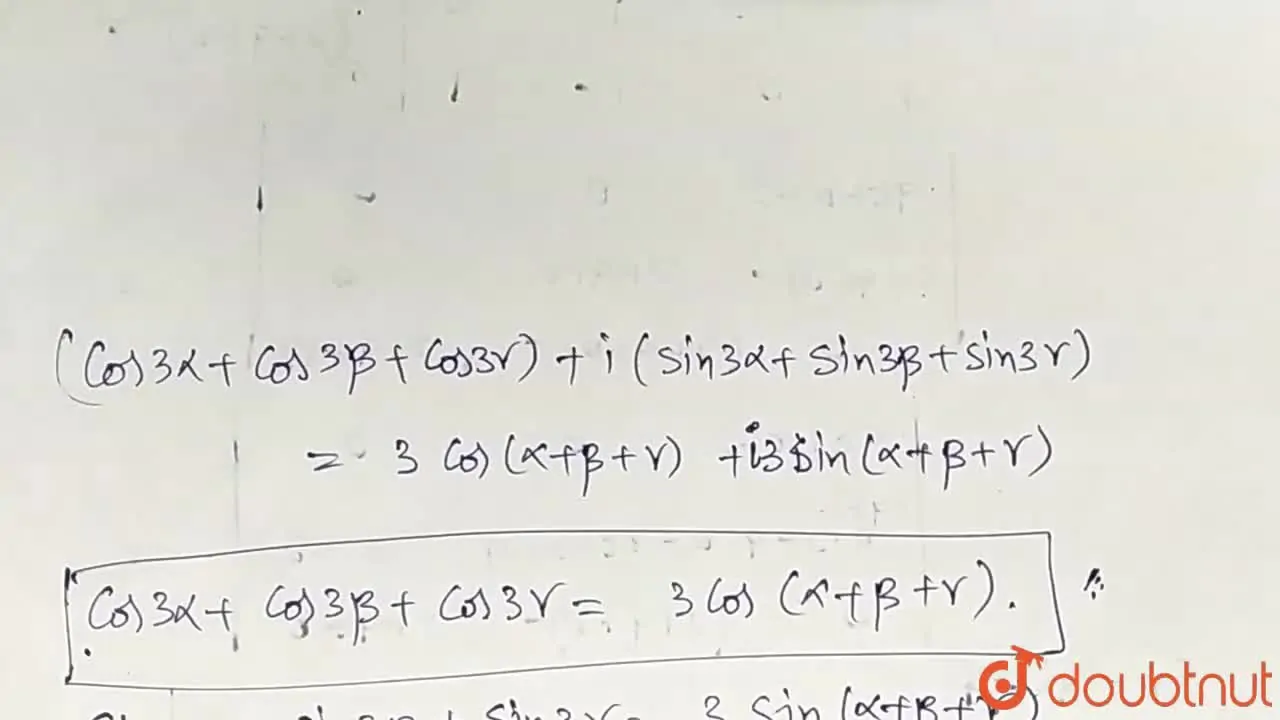 (Cos3α + Cos3β + Cos3γ) + i (Sin3α + Sin3β + Sin3γ)
= 3 Cos (α+β+γ) + i3Sin (α+β+γ)
Cos3α + Cos3β + Cos3γ = 3 Cos (α+β+γ).
Sin3γ = 3 Sin (α+β+γ)
doubtnut